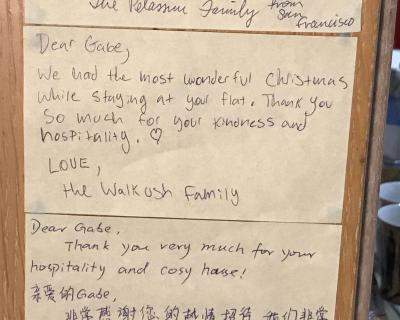 The Pelassur Family from
San
Francisco
Dear Gabe,
We had the most wonderful Christmas
while staying at your flat. Thank you
so much for your kindness and
hospitality. ♡
LOVE,
the Walkush Family
Dear Gabe,
Thank you very much for your
hospitality and cosy house!
亲爱的Gabe,
非常感谢您的热情招待,我们非常